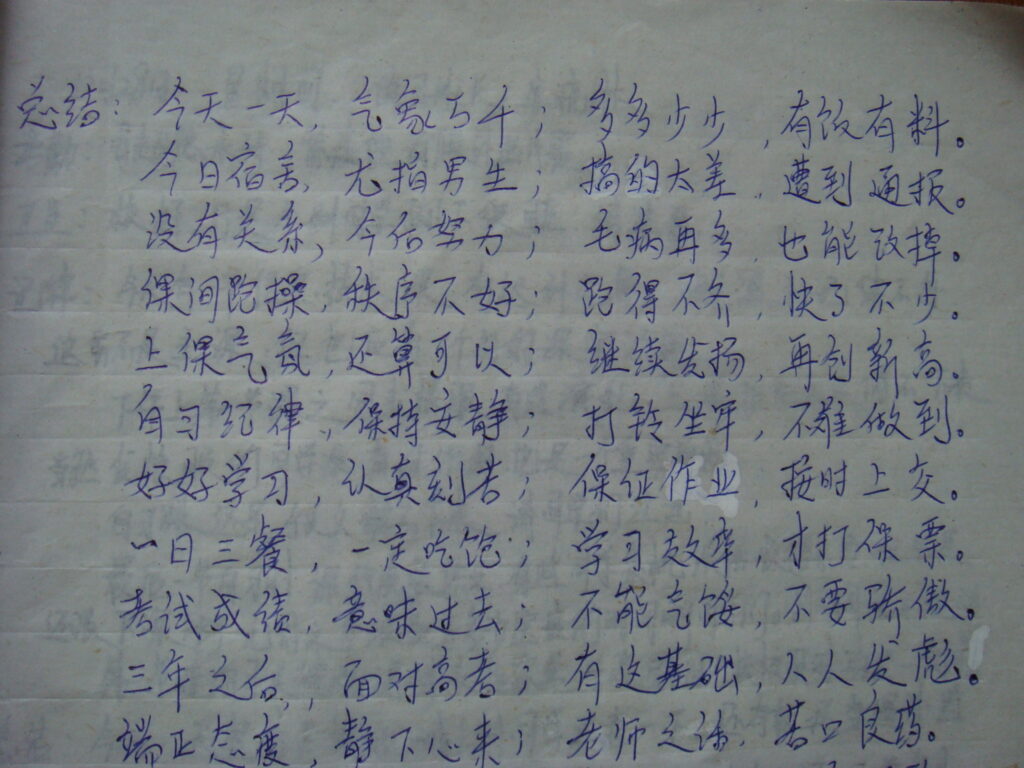 总结：今天一天，气象万千；多多少少，有饭有料。
今日宿舍，尤指男生；搞的太差，遭到通报。
没有关系，今后努力；毛病再多，也能改掉。
课间跑操，秩序不好；跑得不齐，快了不少。
上课气氛，还算可以；继续发扬，再创新高。
自习纪律，保持安静；打铃坐牢，不难做到。
好好学习，认真刻苦；保证作业，按时上交。
一日三餐，一定吃饱；学习效率，才打保票。
考试成绩，意味过去；不能气馁，不要骄傲。
三年之后，面对高考；有这基础，人人发彪。
端正态度，静下心来；老师之话，苦口良药。